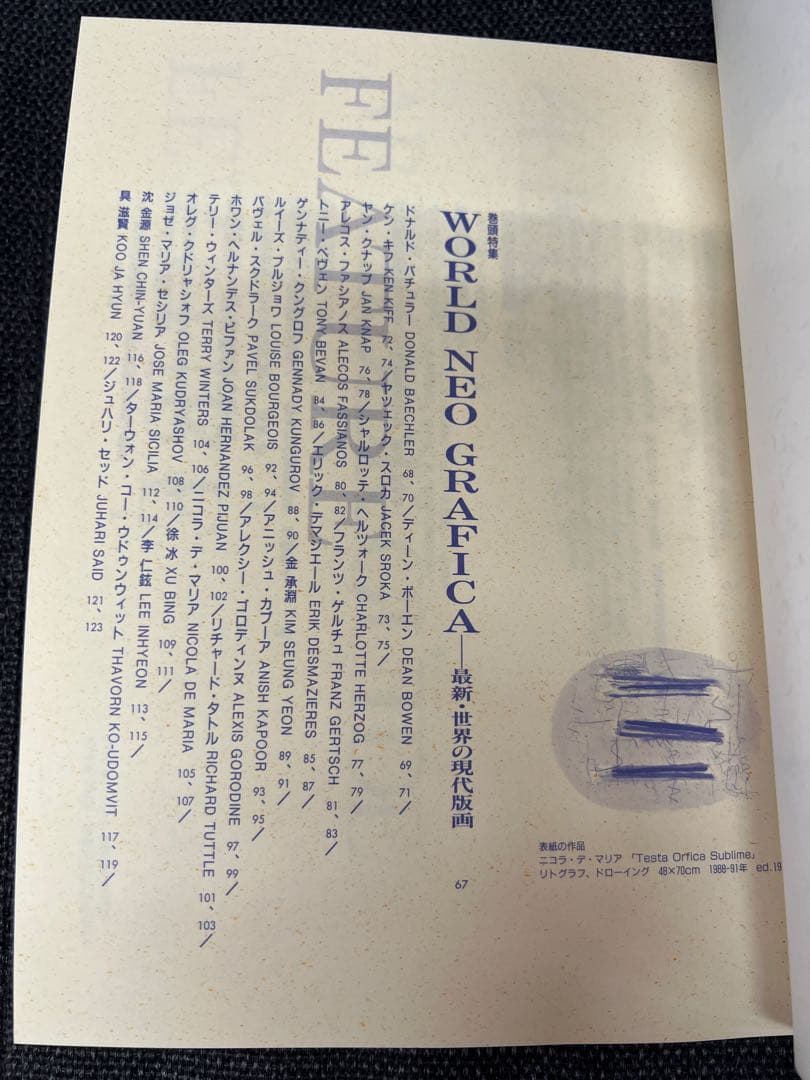 FEATURE
巻頭特集
WORLD NEO GRAFICA──最新・世界の現代版画 67
ドナルド・バチュラー DONALD BAECHLER 68、70／ディーン・ボーエン DEAN BOWEN 69、71／
ケン・キフ KEN KIFF 72、74／ヤツェック・スロカ JACEK SROKA 73、75／
ヤン・クナップ JAN KNAP 76、78／シャルロッテ・ヘルツォーク CHARLOTTE HERZOG 77、79／
アレコス・ファシアノス ALECOS FASSIANOS 80、82／フランツ・ゲルチュ FRANZ GERTSCH 81、83／
トニー・ベヴェン TONY BEVAN 84、86／エリック・デマジエール ERIK DESMAZIERES 85、87／
ゲンナティー・クングロフ GENNADY KUNGUROV 88、90／金 承淵 KIM SEUNG YEON 89、91／
ルイーズ・ブルジョワ LOUISE BOURGEOIS 92、94／アニッシュ・カプーア ANISH KAPOOR 93、95／
パヴェル・スクドラーク PAVEL SUKDOLAK 96、98／アレクシー・ゴロディンヌ ALEXIS GORODINE 97、99／
ホワン・ヘルナンデス・ピファン JOAN HERNANDEZ PIJUAN 100、102／リチャード・タトル RICHARD TUTTLE 101、103／
テリー・ウィンターズ TERRY WINTERS 104、106／ニコラ・デ・マリア NICOLA DE MARIA 105、107／
オレグ・クドリャショフ OLEG KUDRYASHOV 108、110／徐 冰 XU BING 109、111／
ジョゼ・マリア・セシリア JOSE MARIA SICILIA 112、114／李 仁鉉 LEE INHYEON 113、115／
沈 金源 SHEN CHIN-YUAN 116、118／ターウォン・コー・ウドゥンウィット THAVORN KO-UDOMVIT 117、119／
具 滋賢 KOO JA HYUN 120、122／ジュハリ・セッド JUHARI SAID 121、123
表紙の作品
ニコラ・デ・マリア 「Testa Orfica Sublime」
リトグラフ、ドローイング 48×70cm 1988-91年 ed.19